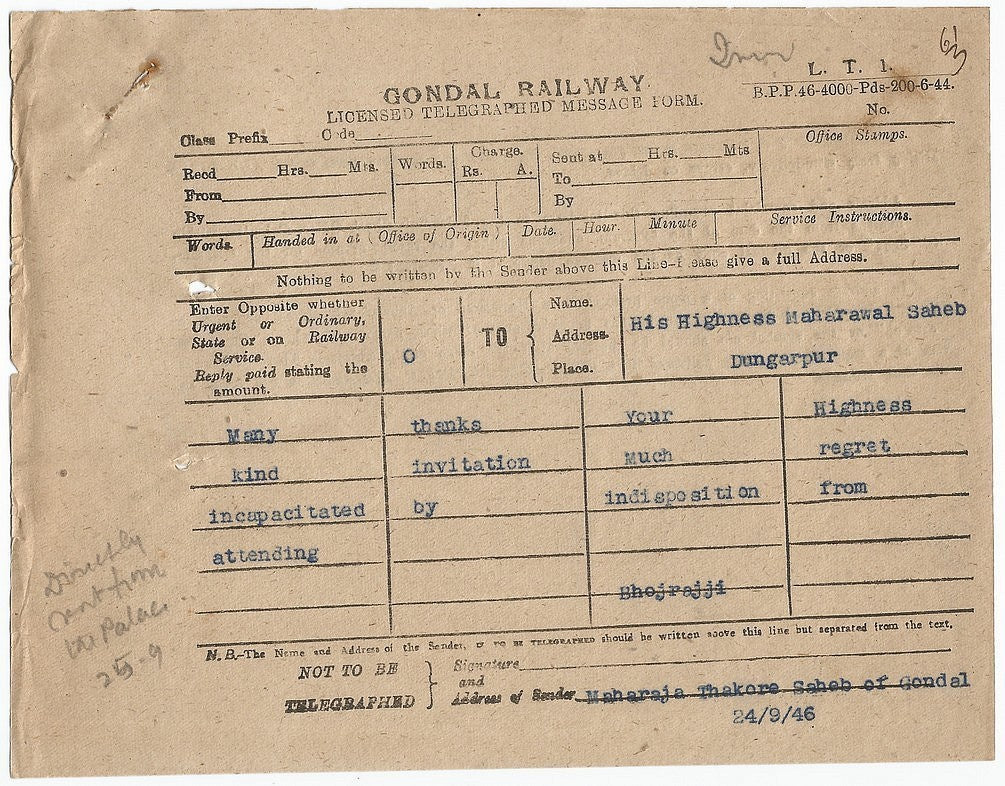 63
L. T. 1.
B.P.P.46-4000-Pds-200-6-44.
No.
GONDAL RAILWAY.
LICENSED TELEGRAPHED MESSAGE FORM.
Class Prefix Code
Office Stamps.
Recd Hrs. Mts. Words. Charge. Sent at Hrs. Mts
Rs. A.
From To
By By
Words. Handed in at (Office of Origin) Date. Hour. Minute Service Instructions.
Nothing to be written by the Sender above this Line-Please give a full Address.
Enter Opposite whether
Urgent or Ordinary,
State or on Railway
Service.
Reply paid stating the
amount.
O
TO
Name.
Address.
Place.
His Highness Maharawal Saheb
Dungarpur
Many thanks Your Highness
kind invitation Much regret
incapacitated by indisposition from
attending
Bhojrajji
Directly
sent from
the Palace
25-9
N.B.-The Name and Address of the Sender, IF TO BE TELEGRAPHED should be written above this line but separated from the text.
NOT TO BE
TELEGRAPHED
Signature
and
Address of Sender Maharaja Thakore Saheb of Gondal
24/9/46